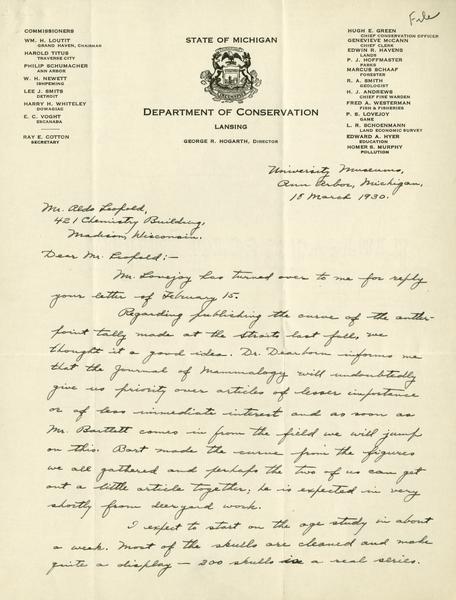 File
COMMISSIONERS
WM. H. LOUTIT
GRAND HAVEN, CHAIRMAN
HAROLD TITUS
TRAVERSE CITY
PHILIP SCHUMACHER
ANN ARBOR
W. H. NEWETT
ISHPEMING
LEE J. SMITS
DETROIT
HARRY H. WHITELEY
DOWAGIAC
E. C. VOGHT
ESCANABA
RAY E. COTTON
SECRETARY
STATE OF MICHIGAN
DEPARTMENT OF CONSERVATION
LANSING
GEORGE R. HOGARTH, DIRECTOR
HUGH E. GREEN
CHIEF CONSERVATION OFFICER
GENEVIEVE MCCANN
CHIEF CLERK
EDWIN R. HAVENS
LANDS
P. J. HOFFMASTER
PARKS
MARCUS SCHAAF
FORESTER
R. A. SMITH
GEOLOGIST
H. J. ANDREWS
CHIEF FIRE WARDEN
FRED A. WESTERMAN
FISH & FISHERIES
P. S. LOVEJOY
GAME
L. R. SCHOENMANN
LAND ECONOMIC SURVEY
EDWARD A. HYER
EDUCATION
HOMER S. MURPHY
POLLUTION
University Museums,
Ann Arbor, Michigan,
18 March 1930.
Mr. Aldo Leopold,
421 Chemistry Building,
Madison, Wisconsin.
Dear Mr. Leopold:-
Mr. Lovejoy has turned over to me for reply
your letter of February 15.
Regarding publishing the curve of the antler-
point tally made at the Straits last fall, we
thought it a good idea. Dr. Dearborn informs me
that the Journal of Mammalogy will undoubtedly
give us priority over articles of lesser importance
or of less immediate interest and as soon as
Mr. Bartlett comes in from the field we will jump
on this. Bart made the curve from the figures
we all gathered and perhaps the two of us can get
out a little article together; he is expected in very
shortly from deeryard work.
I expect to start on the age study in about
a week. Most of the skulls are cleaned and make
quite a display – 200 skulls is a real series.